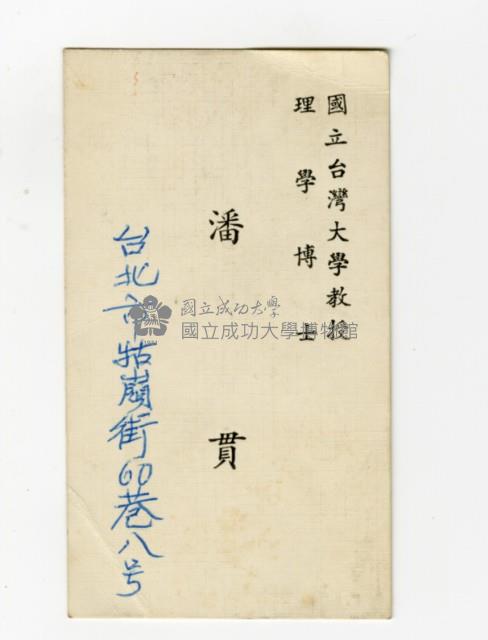 國立台灣大學教授
理學博士
潘貫
台北市牯嶺街60巷八号
國立成功大學
國立成功大學博物館